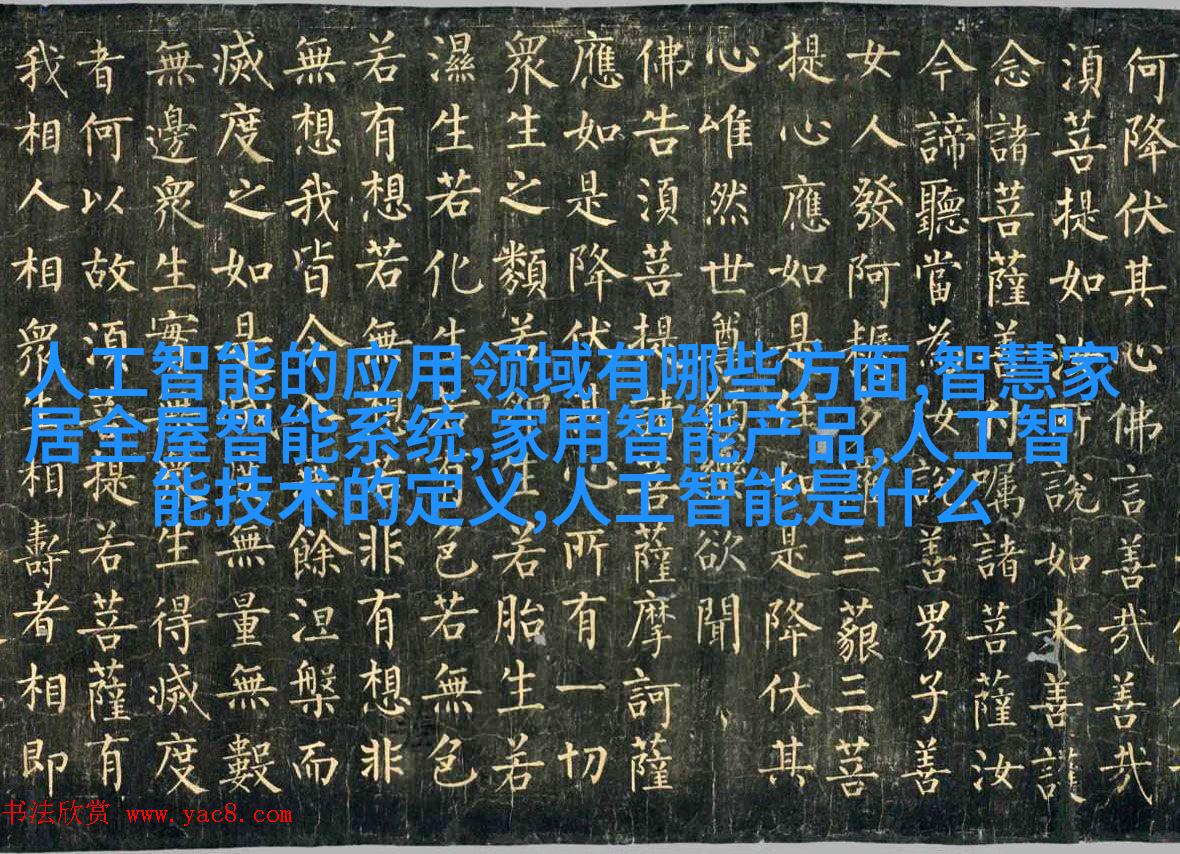 人工智能的应用领域有哪些方面,智慧家
居全屋智能系统,家用智能产品,人工智
能技术的定义,人工智能是什么
何降伏其心佛言善哉善哉
須菩提如汝所說如来善護
念諸菩薩善付嘱諸菩薩汝
今諦聽當為汝說善男子善
女人發阿耨多羅三藐三菩
提心應如是住如是降伏其
心唯然世尊願樂欲聞
佛告須菩提諸菩薩摩訶薩
應如是降伏其心所有一切
衆生之類若卵生若胎生若
濕生若化生若有色若無色
若有想若無想若非有想非
無想我皆令入無餘涅槃而
滅度之如是滅度無量無數
無邊衆生實無衆生得滅度
者何以故須菩提若菩薩有
我相人相衆生相壽者相即
书法欣赏 www.yac8.com